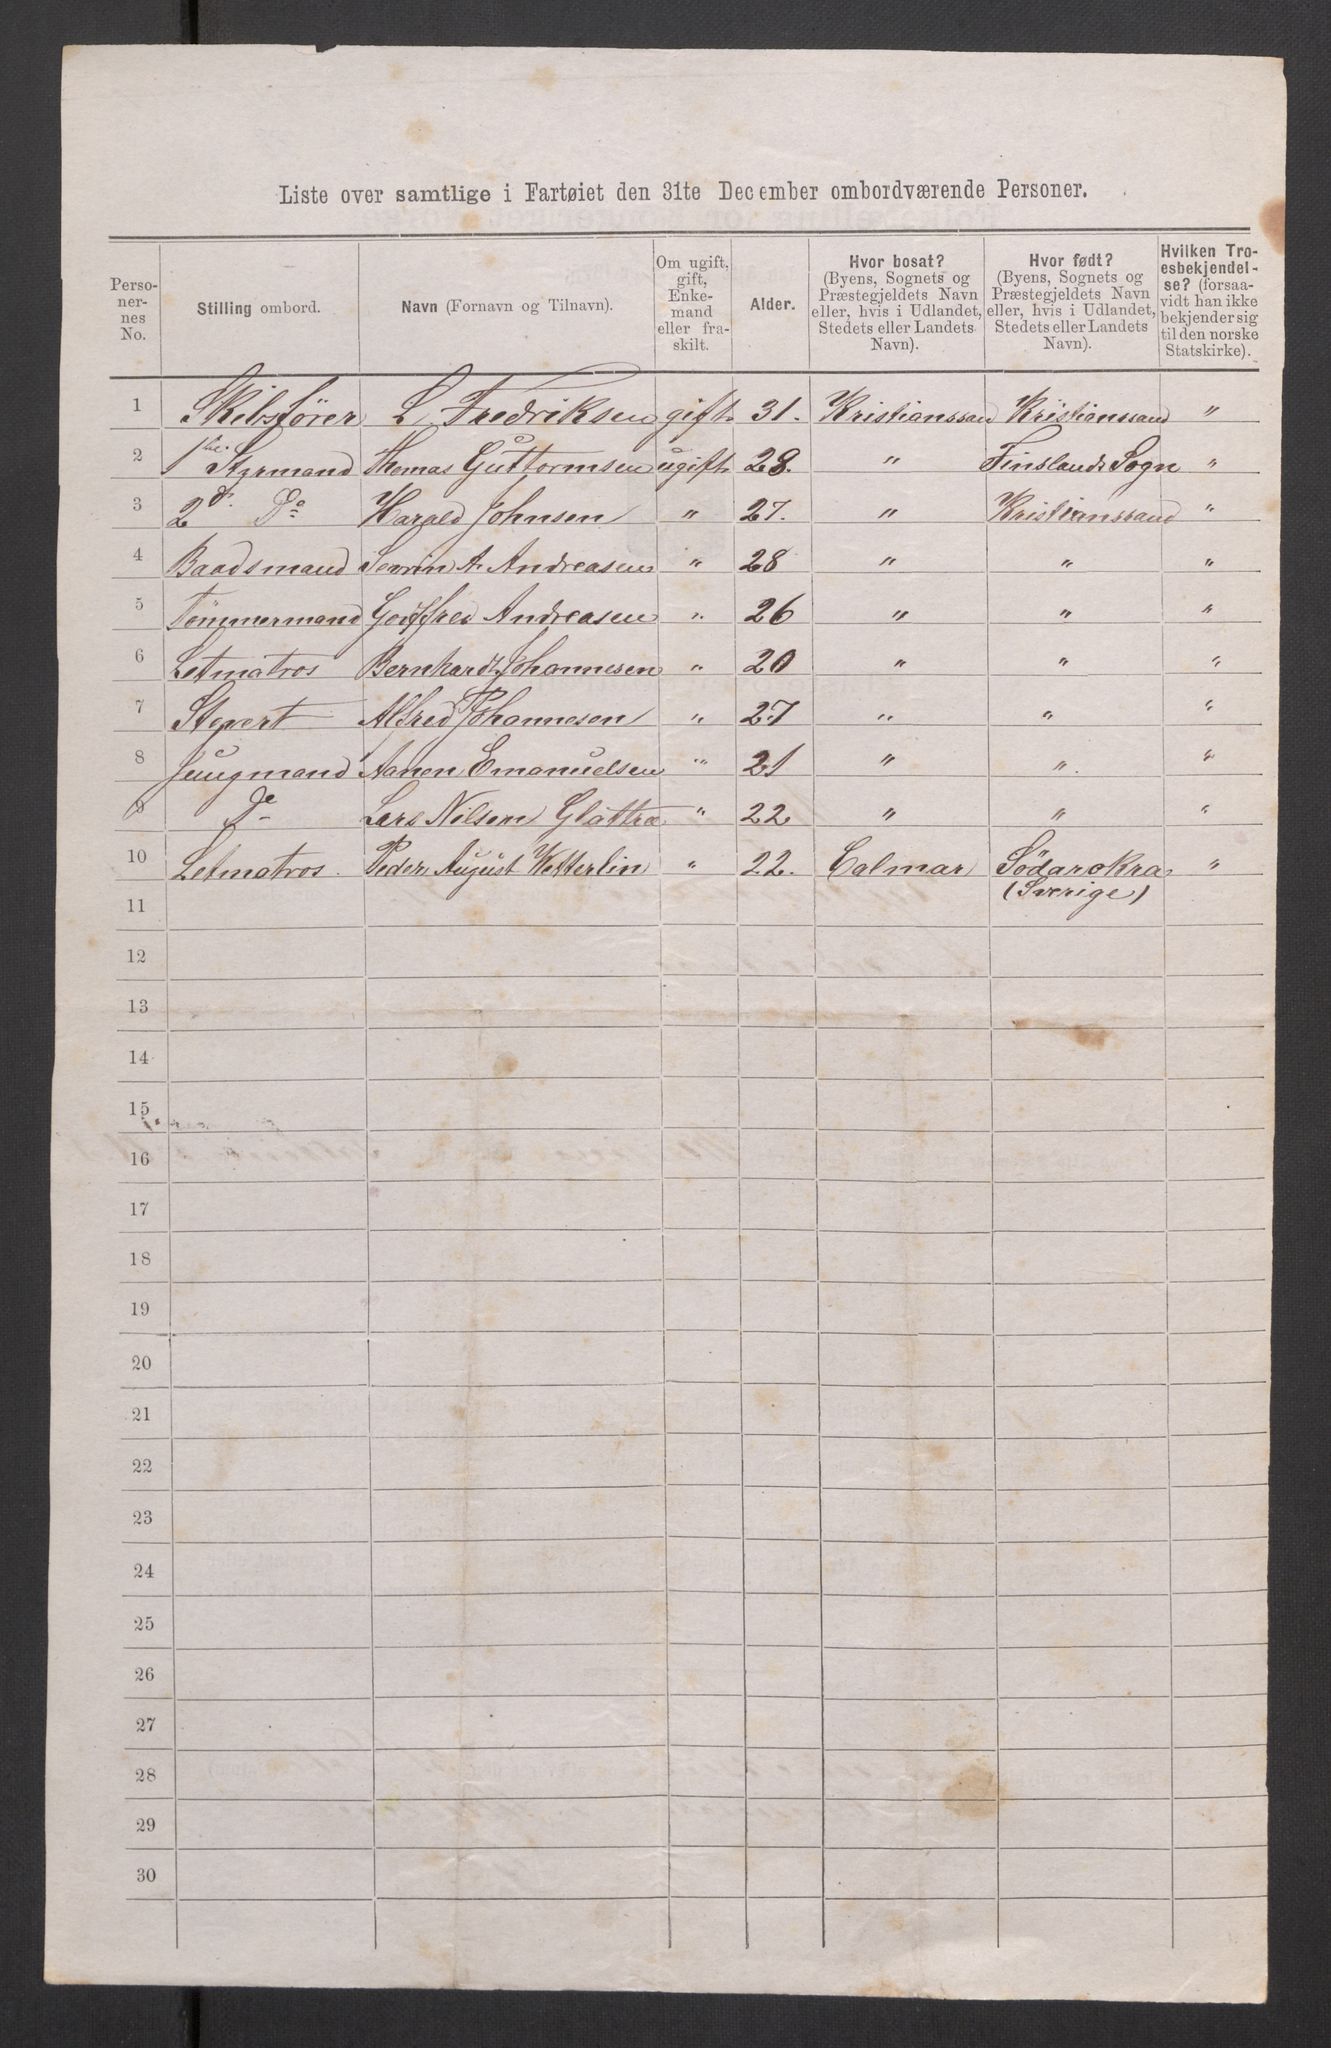 Liste over samtlige i Fartøiet den 31te December ombordværende Personer.
Personernes No. | Stilling ombord. | Navn (Fornavn og Tilnavn). | Om ugift, gift, Enkemand eller fraskilt. | Alder. | Hvor bosat? (Byens, Sognets og Præstegjeldets Navn eller, hvis i Udlandet, Stedets eller Landets Navn). | Hvor født? (Byens, Sognets og Præstegjeldets Navn eller, hvis i Udlandet, Stedets eller Landets Navn). | Hvilken Troesbekjendelse? (forsaavidt han ikke bekjender sig til den norske Statskirke).
1 Skibsfører L. Fredriksen gift. 31. Kristianssand Kristianssand "
2 1ste Styrmand Thomas Guttormsen ugift. 28. " Finslands Sogn "
3 2d. Do Harald Johnsen " 27. " Kristianssand "
4 Baadsmand Sevrin A. Andreasen " 28 " " "
5 Tömmermand Godffred Andreasen " 26 " " "
6 Letmatros Bernhardt Johannesen " 20 " " "
7 Stevert Alfred Johannesen " 27 " " "
8 Jungmand Aanen Emanuelsen " 21 " " "
9 Do Lars Nilsen Glattre " 22 " " "
10 Letmatros. Peder August Wetterlin " 22. Calmar Södarokra "
(Sverige)
11
12
13
14
15
16
17
18
19
20
21
22
23
24
25
26
27
28
29
30